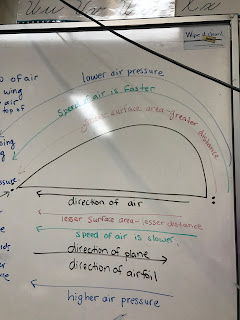 of air
wing
air
top of
lower air pressure
speed of air is faster
greater surface area-greater distance
direction of air
lesser surface area-lesser distance
speed of air is slower
direction of plane
direction of airfoil
higher air pressure